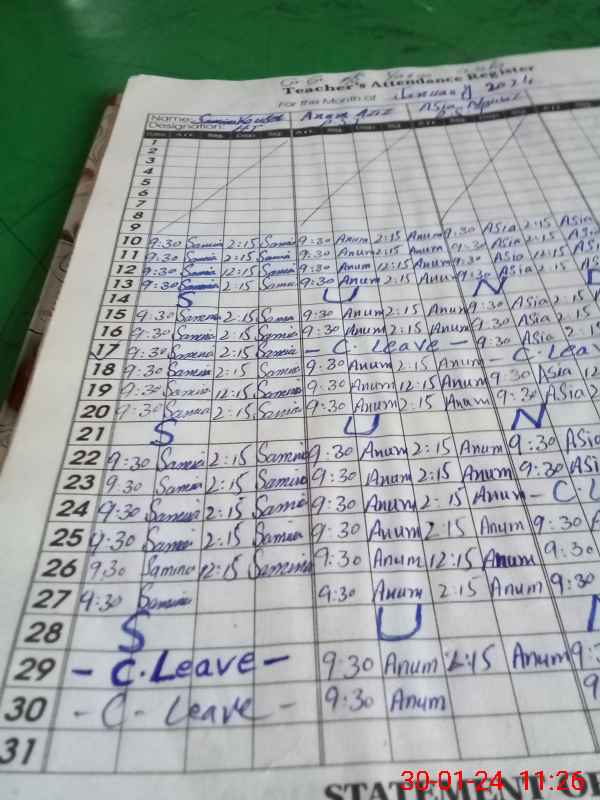 Teacher's Attendance Register
For the Month of January 2024
Name: Anum Aziz Asia
Designation: HT
1
2
3
4
5
6
7
8
9
10 9:30 Samina 2:15 Samina 9:30 Anum 2:15 Anum 9:30 Asia 2:15 Asia
11 9:30 Samina 2:15 Samina 9:30 Anum 2:15 Anum 9:30 Asia 2:15 Asia
12 9:30 Samina 12:15 Samina 9:30 Anum 12:15 Anum 9:30 Asia 12:15 Asia
13 9:30 Samina 2:15 Samina 9:30 Anum 2:15 Anum 9:30 Asia 2:15
14 S U N
15 9:30 Samina 2:15 Samina 9:30 Anum 2:15 Anum 9:30 Asia 2:15
16 9:30 Samina 2:15 Samina 9:30 Anum 2:15 Anum 9:30 Asia 2:15
17 9:30 Samina 2:15 Samina - C. Leave - 9:30 Asia 2:15
18 9:30 Samina 2:15 Samina 9:30 Anum 2:15 Anum - C. Leav
19 9:30 Samina 12:15 Samina 9:30 Anum 12:15 Anum 9:30 Asia 12
20 9:30 Samina 2:15 Samina 9:30 Anum 2:15 Anum 9:30 Asia 2
21 S U N
22 9:30 Samina 2:15 Samina 9:30 Anum 2:15 Anum 9:30 Asia
23 9:30 Samina 2:15 Samina 9:30 Anum 2:15 Anum 9:30 Asi
24 9:30 Samina 2:15 Samina 9:30 Anum 2:15 Anum - C. L
25 9:30 Samina 2:15 Samina 9:30 Anum 2:15 Anum 9:30 A
26 9:30 Samina 12:15 Samina 9:30 Anum 12:15 Anum 9:30
27 9:30 Samina 9:30 Anum 2:15 Anum 9:30
28 S U
29 - C. Leave - 9:30 Anum 2:15 Anum 9:
30 - C - Leave - 9:30 Anum 9
31
STATEMENT OF
30-01-24 11:26